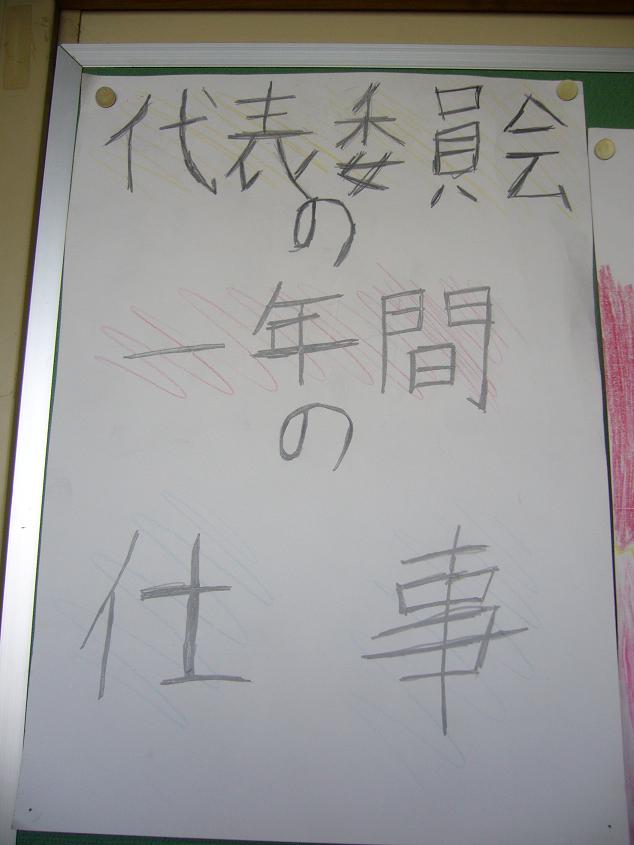 代表委員会
の
一年間
の
仕事